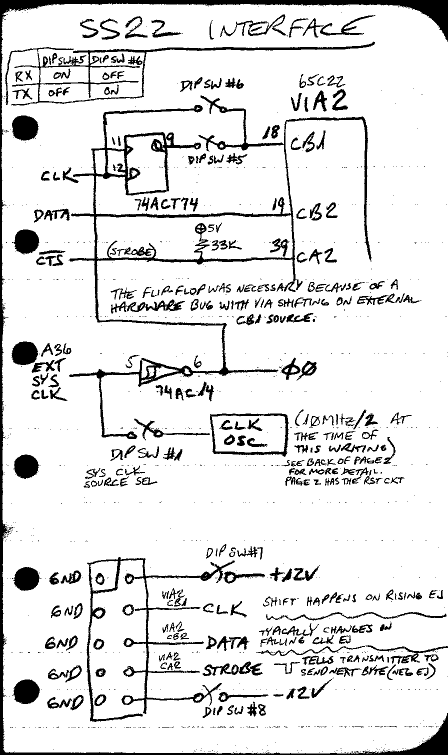 SS22 INTERFACE
DIP SW#5 DIP SW #6
RX ON OFF
TX OFF ON
DIP SW #6
65C22
VIA2
11 Q 9 DIP SW#5 18 CB1
CLK 12 D
74ACT74
DATA 19 CB2
⊕5V
33K
CTS (STROBE) 39 CA2
THE FLIP-FLOP WAS NECESSARY BECAUSE OF A
HARDWARE BUG WITH VIA SHIFTING ON EXTERNAL
CB1 SOURCE.
A36
EXT
SYS
CLK
5 6 Φ0
74AC14
DIP SW #1
SYS CLK
SOURCE SEL
CLK
OSC
(10MHz/2 AT
THE TIME OF
THIS WRITING)
SEE BACK OF PAGE 2
FOR MORE DETAIL.
PAGE 2 HAS THE RST CKT
DIP SW#7
GND +12V
GND VIA2 CB1 CLK SHIFT HAPPENS ON RISING EJ
GND VIA2 CB2 DATA TYPICALLY CHANGES ON
FALLING CLK EJ
GND VIA2 CA2 STROBE TELLS TRANSMITTER TO
SEND NEXT BYTE (NEG EJ)
GND -12V
DIP SW #8